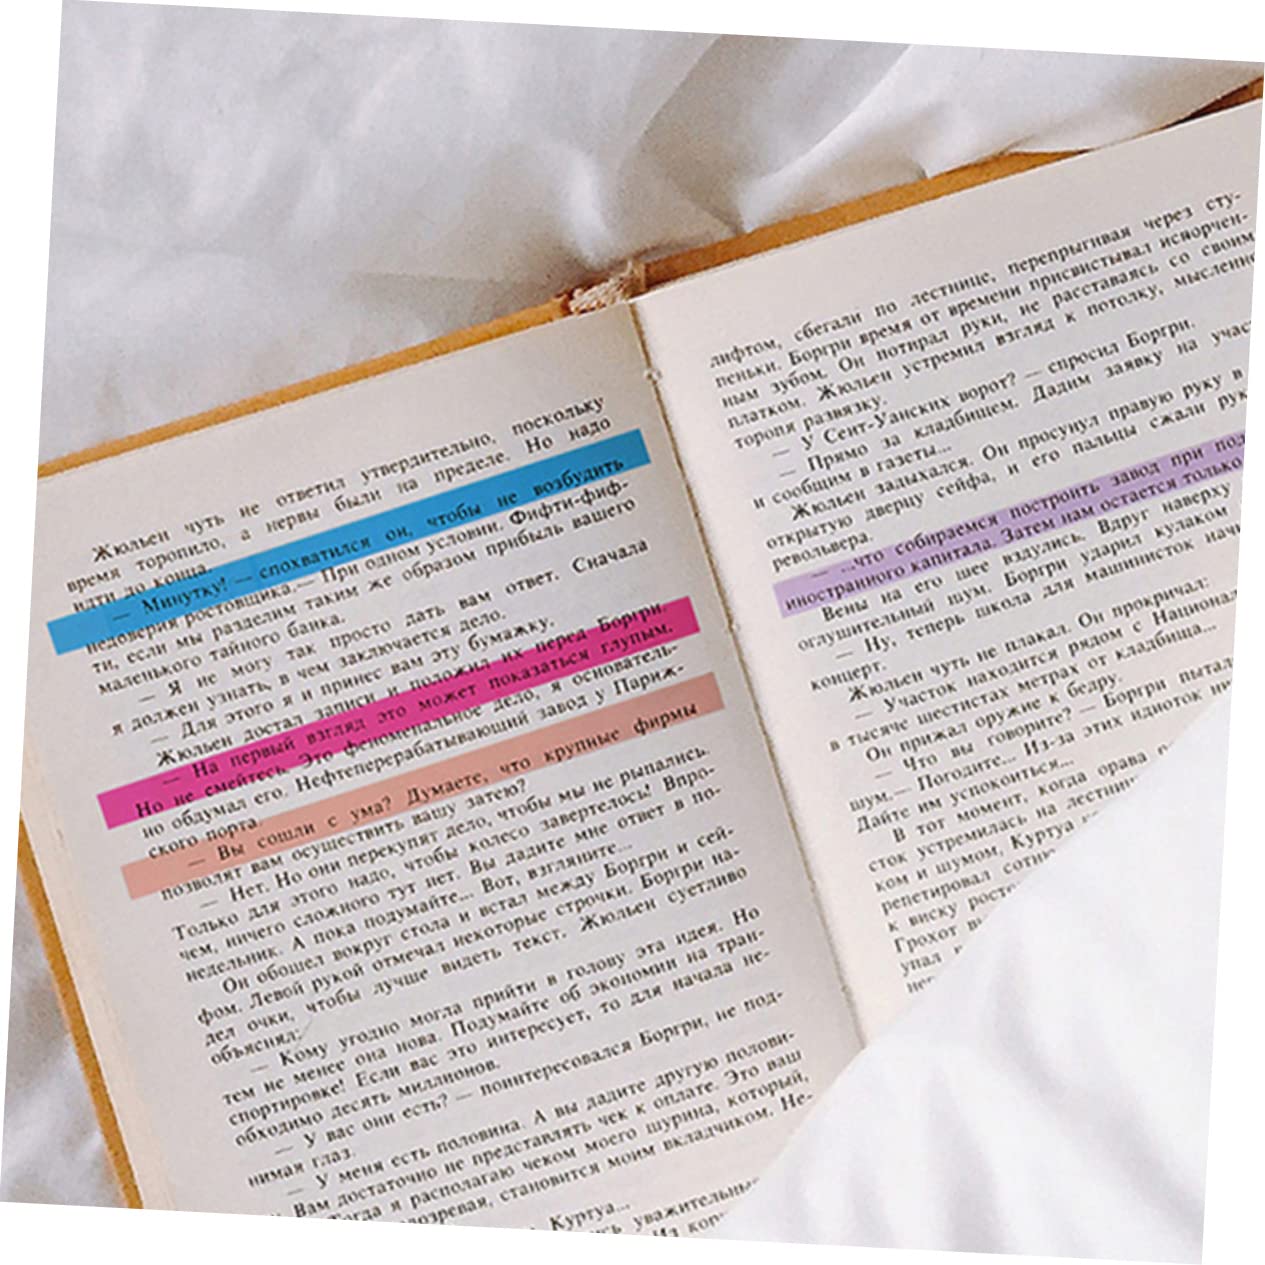 Жюльен чуть не ответил утвердительно, поскольку
время торопило, а нервы были на пределе. Но надо
идти до конца.
— Минутку! — спохватился он, чтобы не возбудить
недоверия ростовщика.— При одном условии. Фифти-фиф-
ти, если мы разделим таким же образом прибыль вашего
маленького тайного банка.
— Я не могу так просто дать вам ответ. Сначала
я должен узнать, в чем заключается дело.
— Для этого я и принес вам эту бумажку.
Жюльен достал записи и положил их перед Боргри.
— На первый взгляд это может показаться глупым.
Но не смейтесь. Это феноменальное дело, я основатель-
но обдумал его. Нефтеперерабатывающий завод у Париж-
ского порта.
— Вы сошли с ума? Думаете, что крупные фирмы
позволят вам осуществить вашу затею?
— Нет. Но они перекупят дело, чтобы мы не рыпались.
Только для этого надо, чтобы колесо завертелось! Впро-
чем, ничего сложного тут нет. Вы дадите мне ответ в по-
недельник. А пока подумайте... Вот, взгляните...
Он обошел вокруг стола и встал между Боргри и сей-
фом. Левой рукой отмечал некоторые строчки. Боргри на-
дел очки, чтобы лучше видеть текст. Жюльен суетливо
объяснял:
— Кому угодно могла прийти в голову эта идея. Но
тем не менее она нова. Подумайте об экономии на тран-
спортировке! Если вас это интересует, то для начала не-
обходимо десять миллионов.
— У вас они есть? — поинтересовался Боргри, не под-
нимая глаз.
— У меня есть половина. А вы дадите другую полови-
Вам достаточно не представлять чек к оплате. Это ваш
Тогда я располагаю чеком моего шурина, который,
подозревая, становится моим вкладчиком. Не-
Куртуа...
уважительны
Из
лифтом, сбегали по лестнице, перепрыгивая через сту-
пеньки. Боргри время от времени присвистывал испорчен-
ным зубом. Он потирал руки, не расставаясь со своим
платком. Жюльен устремил взгляд к потолку, мысленно
торопя развязку.
— У Сент-Уанских ворот? — спросил Боргри.
— Прямо за кладбищем. Дадим заявку на учас
и сообщим в газеты...
Жюльен задыхался. Он просунул правую руку в
открытую дверцу сейфа, и его пальцы сжали рук
револьвера.
— ...что собираемся построить завод при под
иностранного капитала. Затем нам остается только
Вены на его шее вздулись. Вдруг наверху
оглушительный шум. Боргри ударил кулаком
— Ну, теперь школа для машинисток нач
концерт.
Жюльен чуть не плакал. Он прокричал:
— Участок находится рядом с Национал
в тысяче шестистах метрах от кладбища...
Он прижал оружие к бедру.
— Что вы говорите? — Боргри пытал
шум.— Погодите... Из-за этих идиоток ни
Дайте им успокоиться...
В тот момент, когда орава
сток устремилась на лестни
ком и шумом, Куртуа
репетировал сотни
к виску рост
Грохот
упал